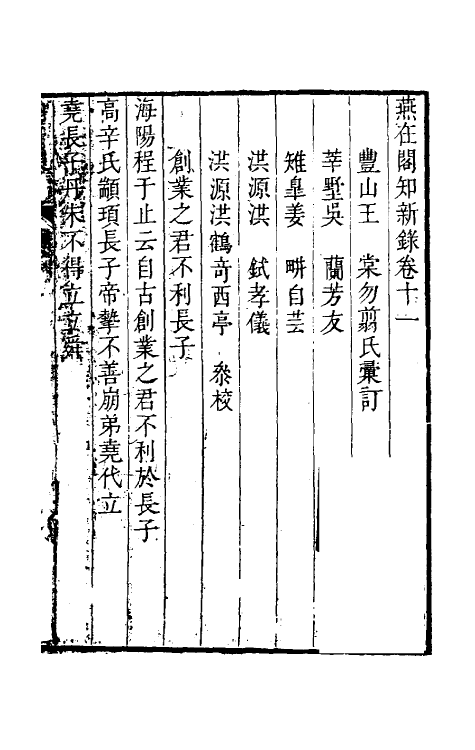 燕在閣知新錄卷十一
豐山王　棠勿翦氏彙訂
莘墅吳　蘭芳友
雉皐姜　畊自芸
洪源洪　鉽孝儀
洪源洪鶴奇西亭　叅校
創業之君不利長子
海陽程于止云自古創業之君不利於長子
高辛氏顓頊長子帝摯不善崩弟堯代立
堯長子丹朱不得立立舜